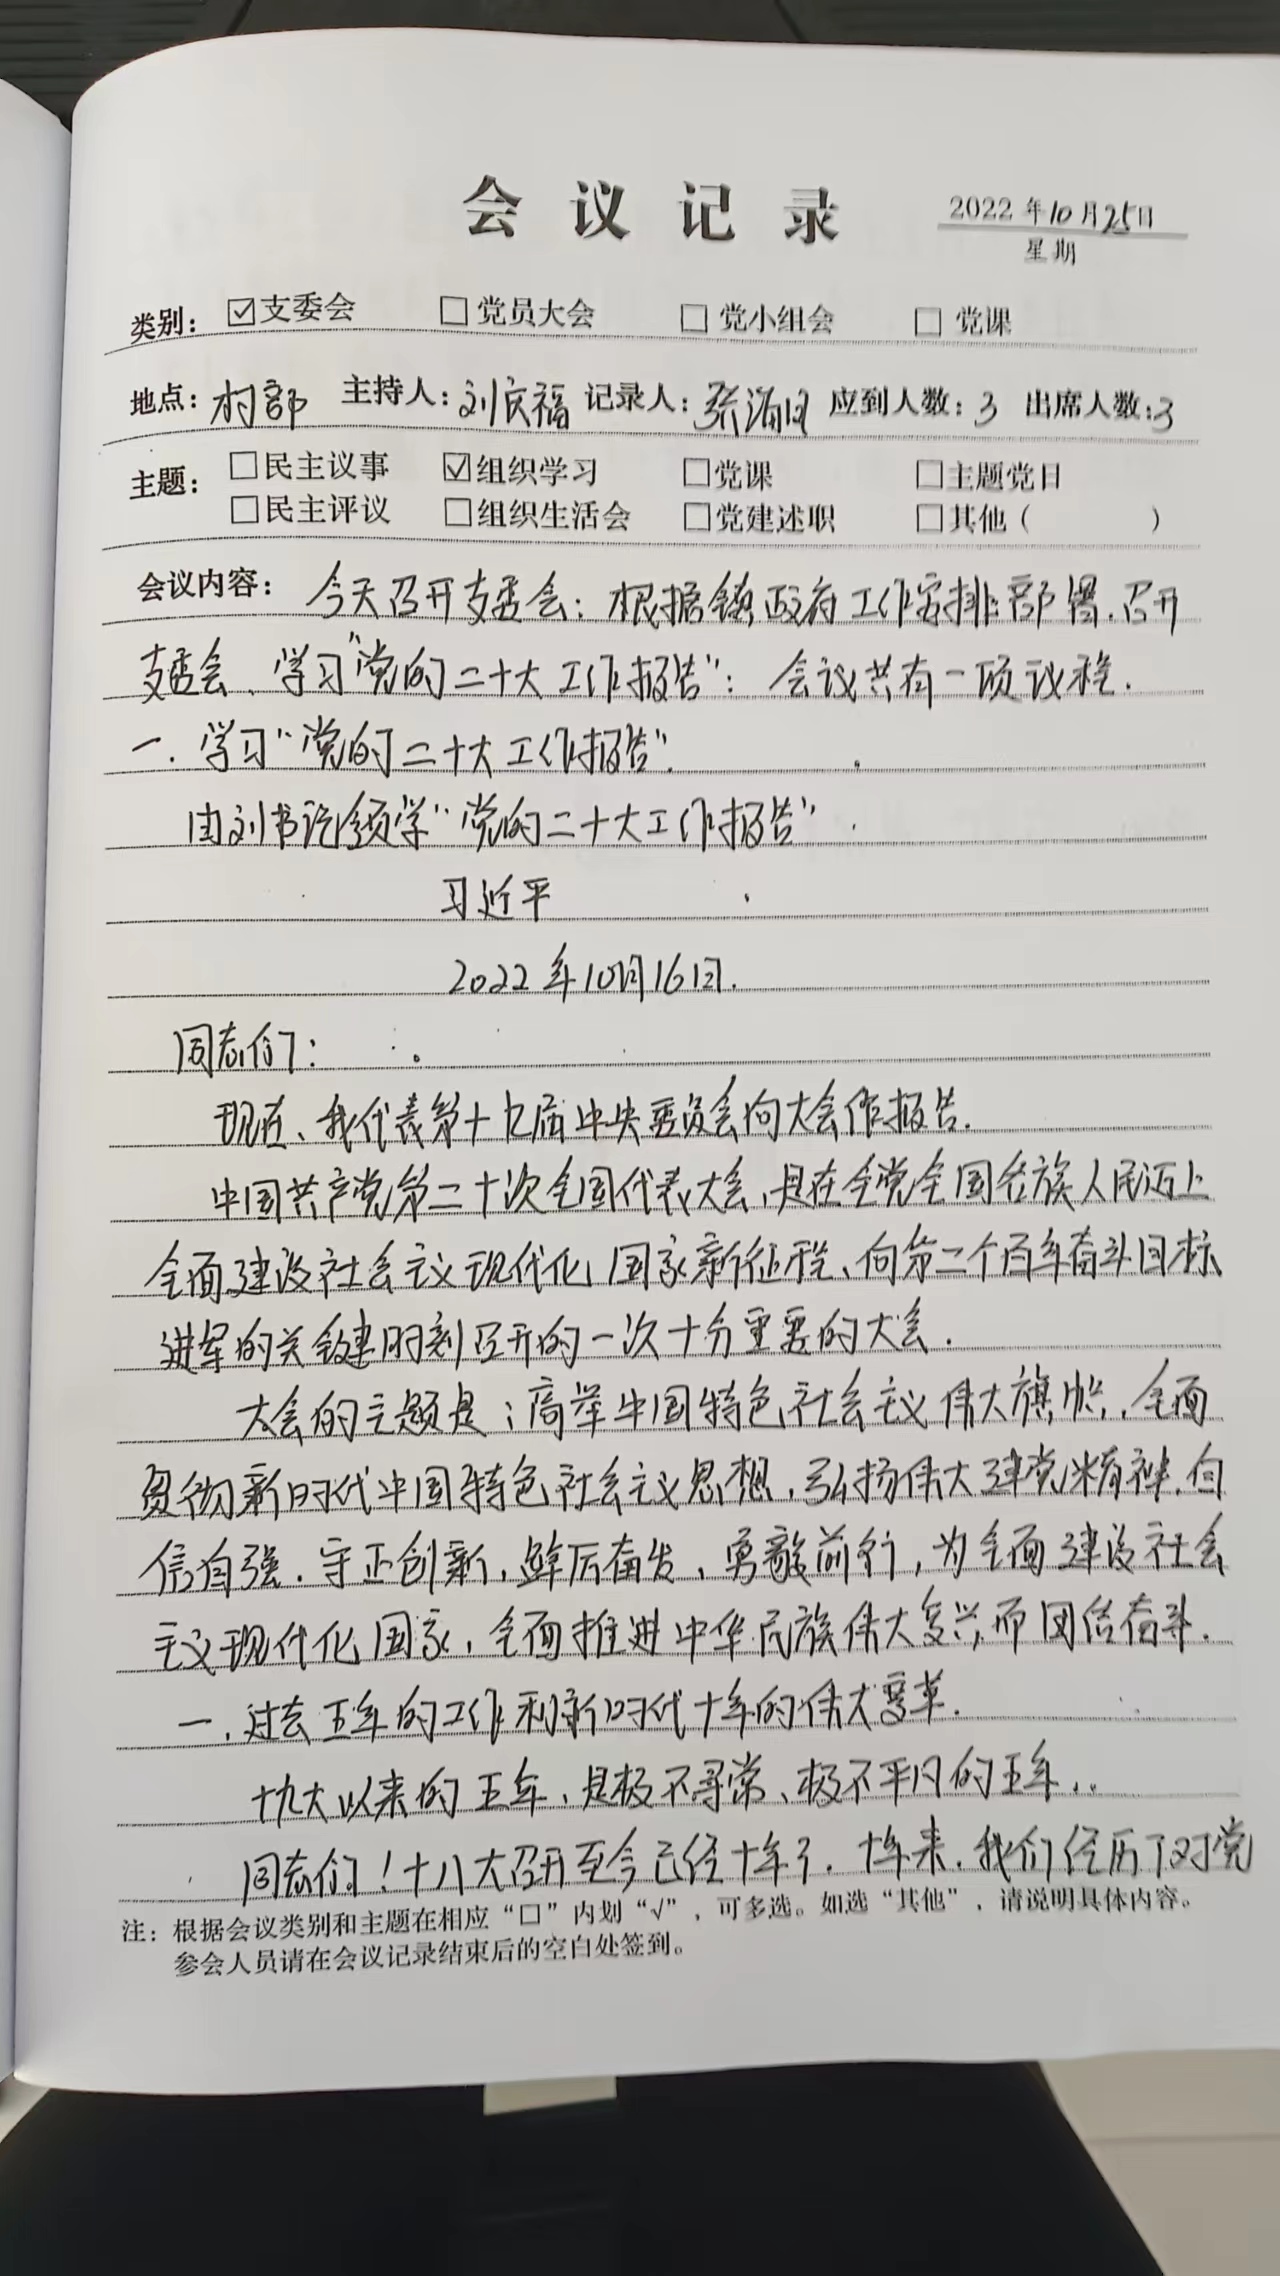 会议记录
2022年10月25日
星期
类别：☑支委会 □党员大会 □党小组会 □党课
地点：村部 主持人：刘庆福 记录人：张 应到人数：3 出席人数：3
主题：□民主议事 ☑组织学习 □党课 □主题党日
□民主评议 □组织生活会 □党建述职 □其他（ ）
会议内容：今天召开支委会：根据镇政府工作安排部署.召开
支委会、学习"党的二十大工作报告"：会议共有一项议程.
一.学习"党的二十大工作报告".
由刘书记领学"党的二十大工作报告".
习近平
2022年10月16日.
同志们：
现在、我代表第十九届中央委员会向大会作报告.
中国共产党第二十次全国代表大会,是在全党全国各族人民迈上
全面建设社会主义现代化国家新征程、向第二个百年奋斗目标
进军的关键时刻召开的一次十分重要的大会.
大会的主题是：高举中国特色社会主义伟大旗帜,全面
贯彻新时代中国特色社会主义思想,弘扬伟大建党精神,自
信自强.守正创新,踔厉奋发、勇毅前行,为全面建设社会
主义现代化国家,全面推进中华民族伟大复兴而团结奋斗.
一.过去五年的工作和新时代十年的伟大变革.
十九大以来的五年,是极不寻常、极不平凡的五年..
同志们！十八大召开至今已经十年了.十年来.我们经历了对党
注：根据会议类别和主题在相应"□"内划"√"，可多选。如选"其他"，请说明具体内容。
参会人员请在会议记录结束后的空白处签到。